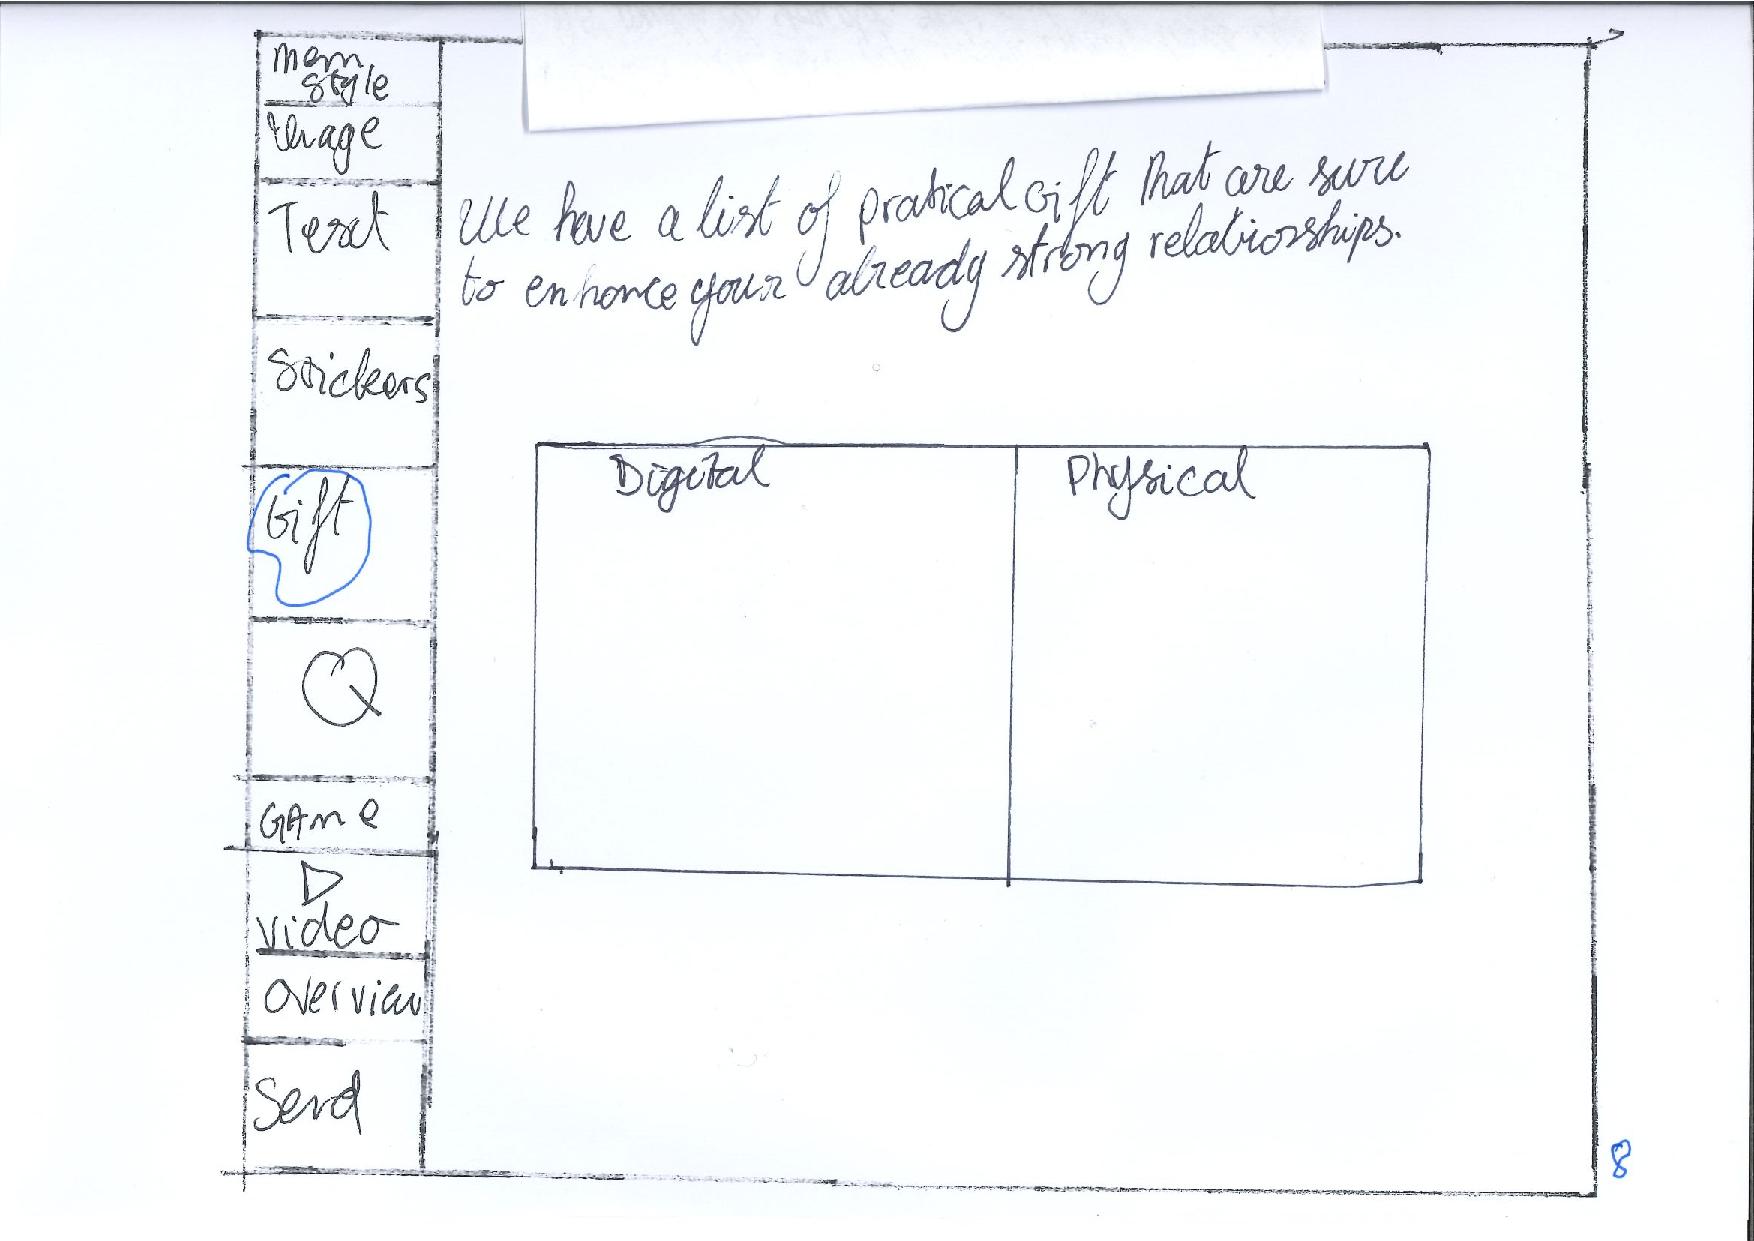 mem
style
Image
Text
Stickers
Gift
GAme
video
overview
Send
We have a list of pratical Gift that are sure
to enhance your already strong relationships.
Digital
Physical
8